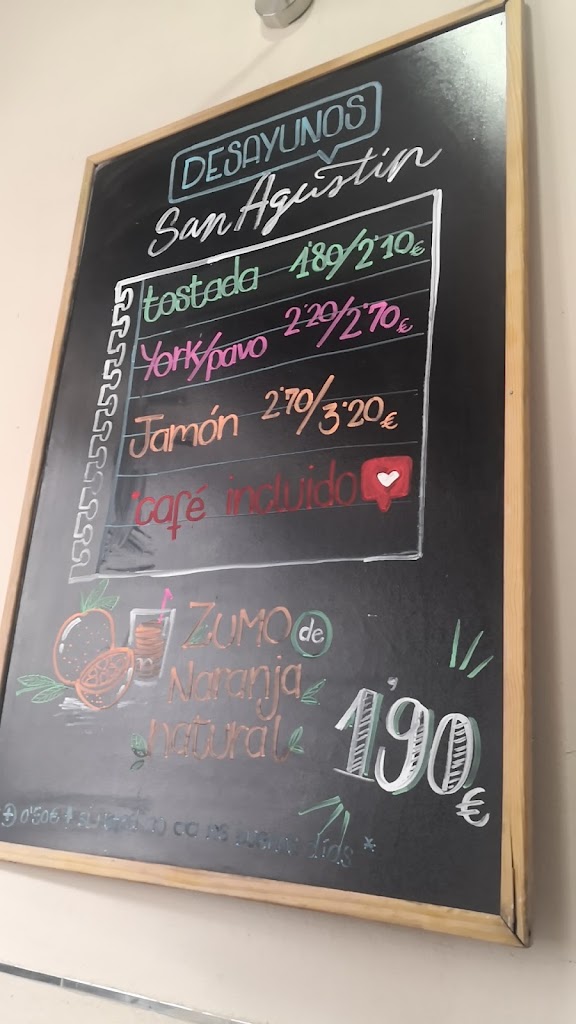 DESAYUNOS
San Agustin
tostada 1'80/2'10€
York/pavo 2'20/2'70€
Jamón 2'70/3'20€
*café incluido
ZUMO de
Naranja
natural
1'90€
0'50€
días *